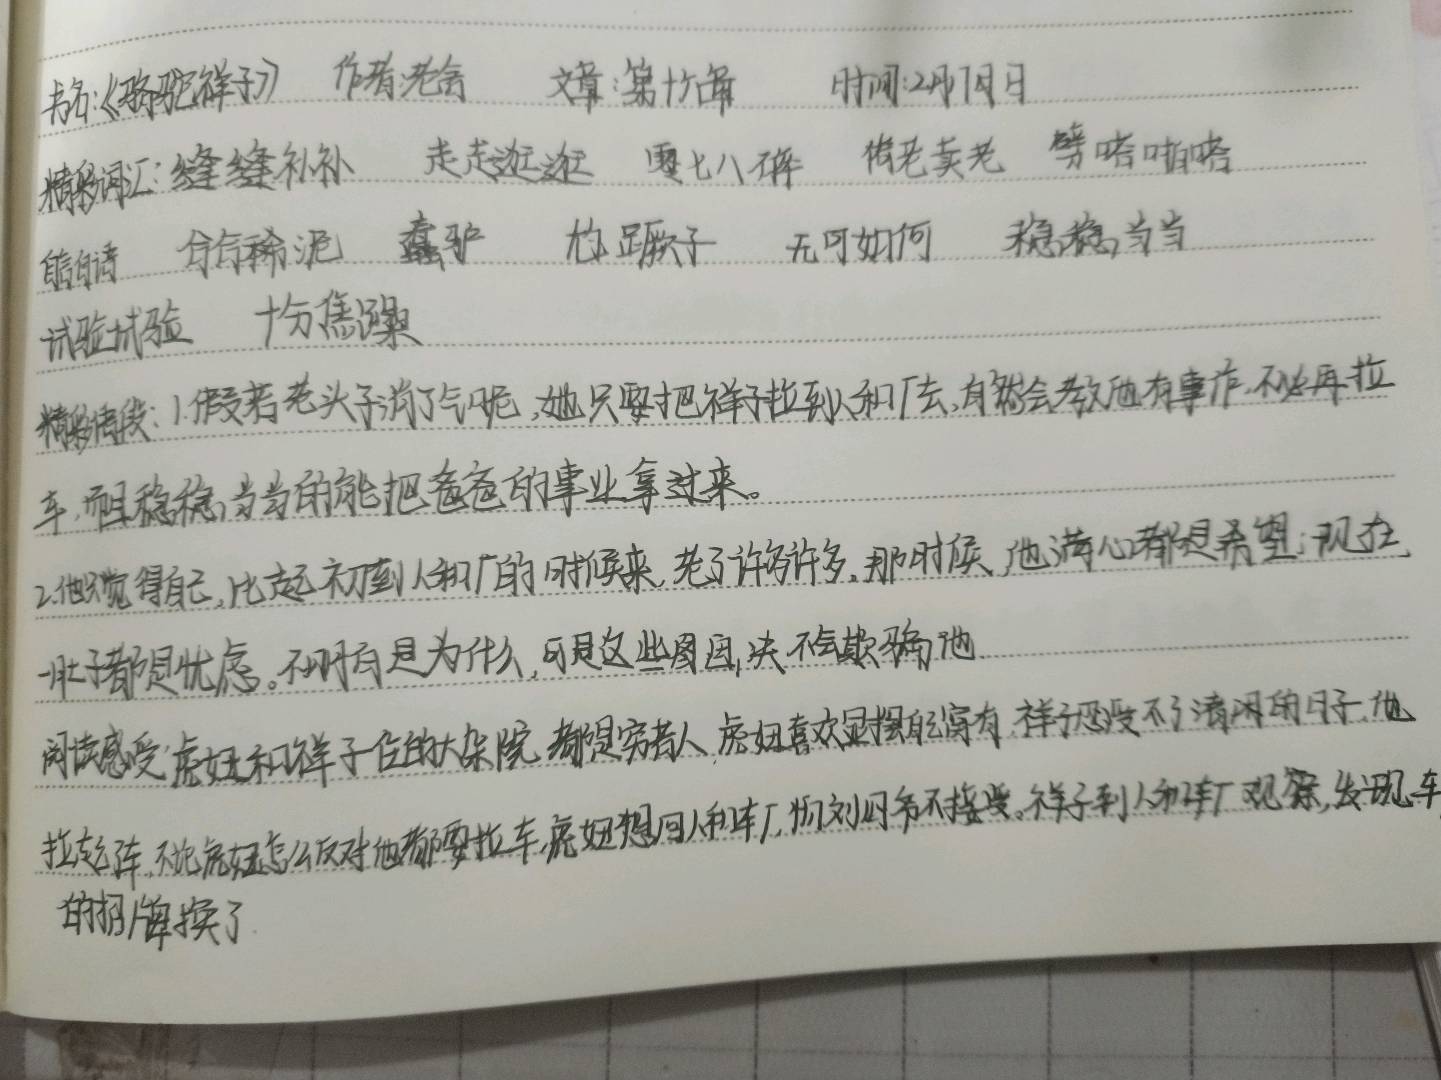 书名:《骆驼祥子》 作者:老舍 文章:第十六章 时间:2月17日
精彩词汇:缝缝补补 走走逛逛 零七八碎 倚老卖老 劈嗒啪嗒
稀泥 蠢驴 尥蹶子 无可如何 稳稳当当
试验试验 十分焦躁
精彩语段:1.假若老头子消了气呢,她只要把祥子拉到人和厂去,自然会教他有事作,不必再拉
车,而且稳稳当当的能把爸爸的事业拿过来。
2.他只觉得自己,比起初到人和厂的时候来,老了许多许多。那时候,他满心都是希望;现在
一肚子都是忧虑。不明白是为什么,可是这些图画,决不会欺骗他
阅读感受:虎妞和祥子住的大杂院都是穷苦人,虎妞喜欢显摆自己富有,祥子忍受不了清闲的日子,他
拉起车,不论虎妞怎么反对他都要拉车,虎妞想回人和车厂,怕刘四爷不接受。祥子到人和车厂观察,发现车
的招牌换了